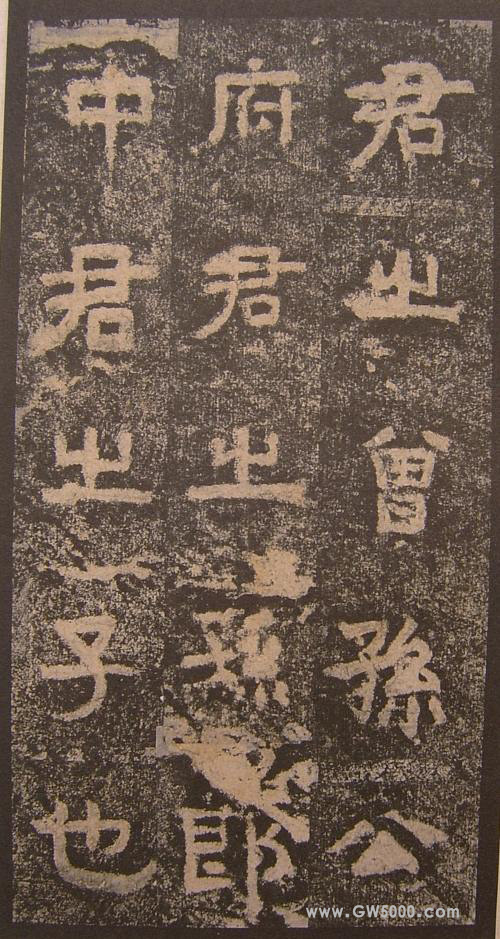 君之曾孫公
府君之孫郎
中君之子也
www.GW5000.com